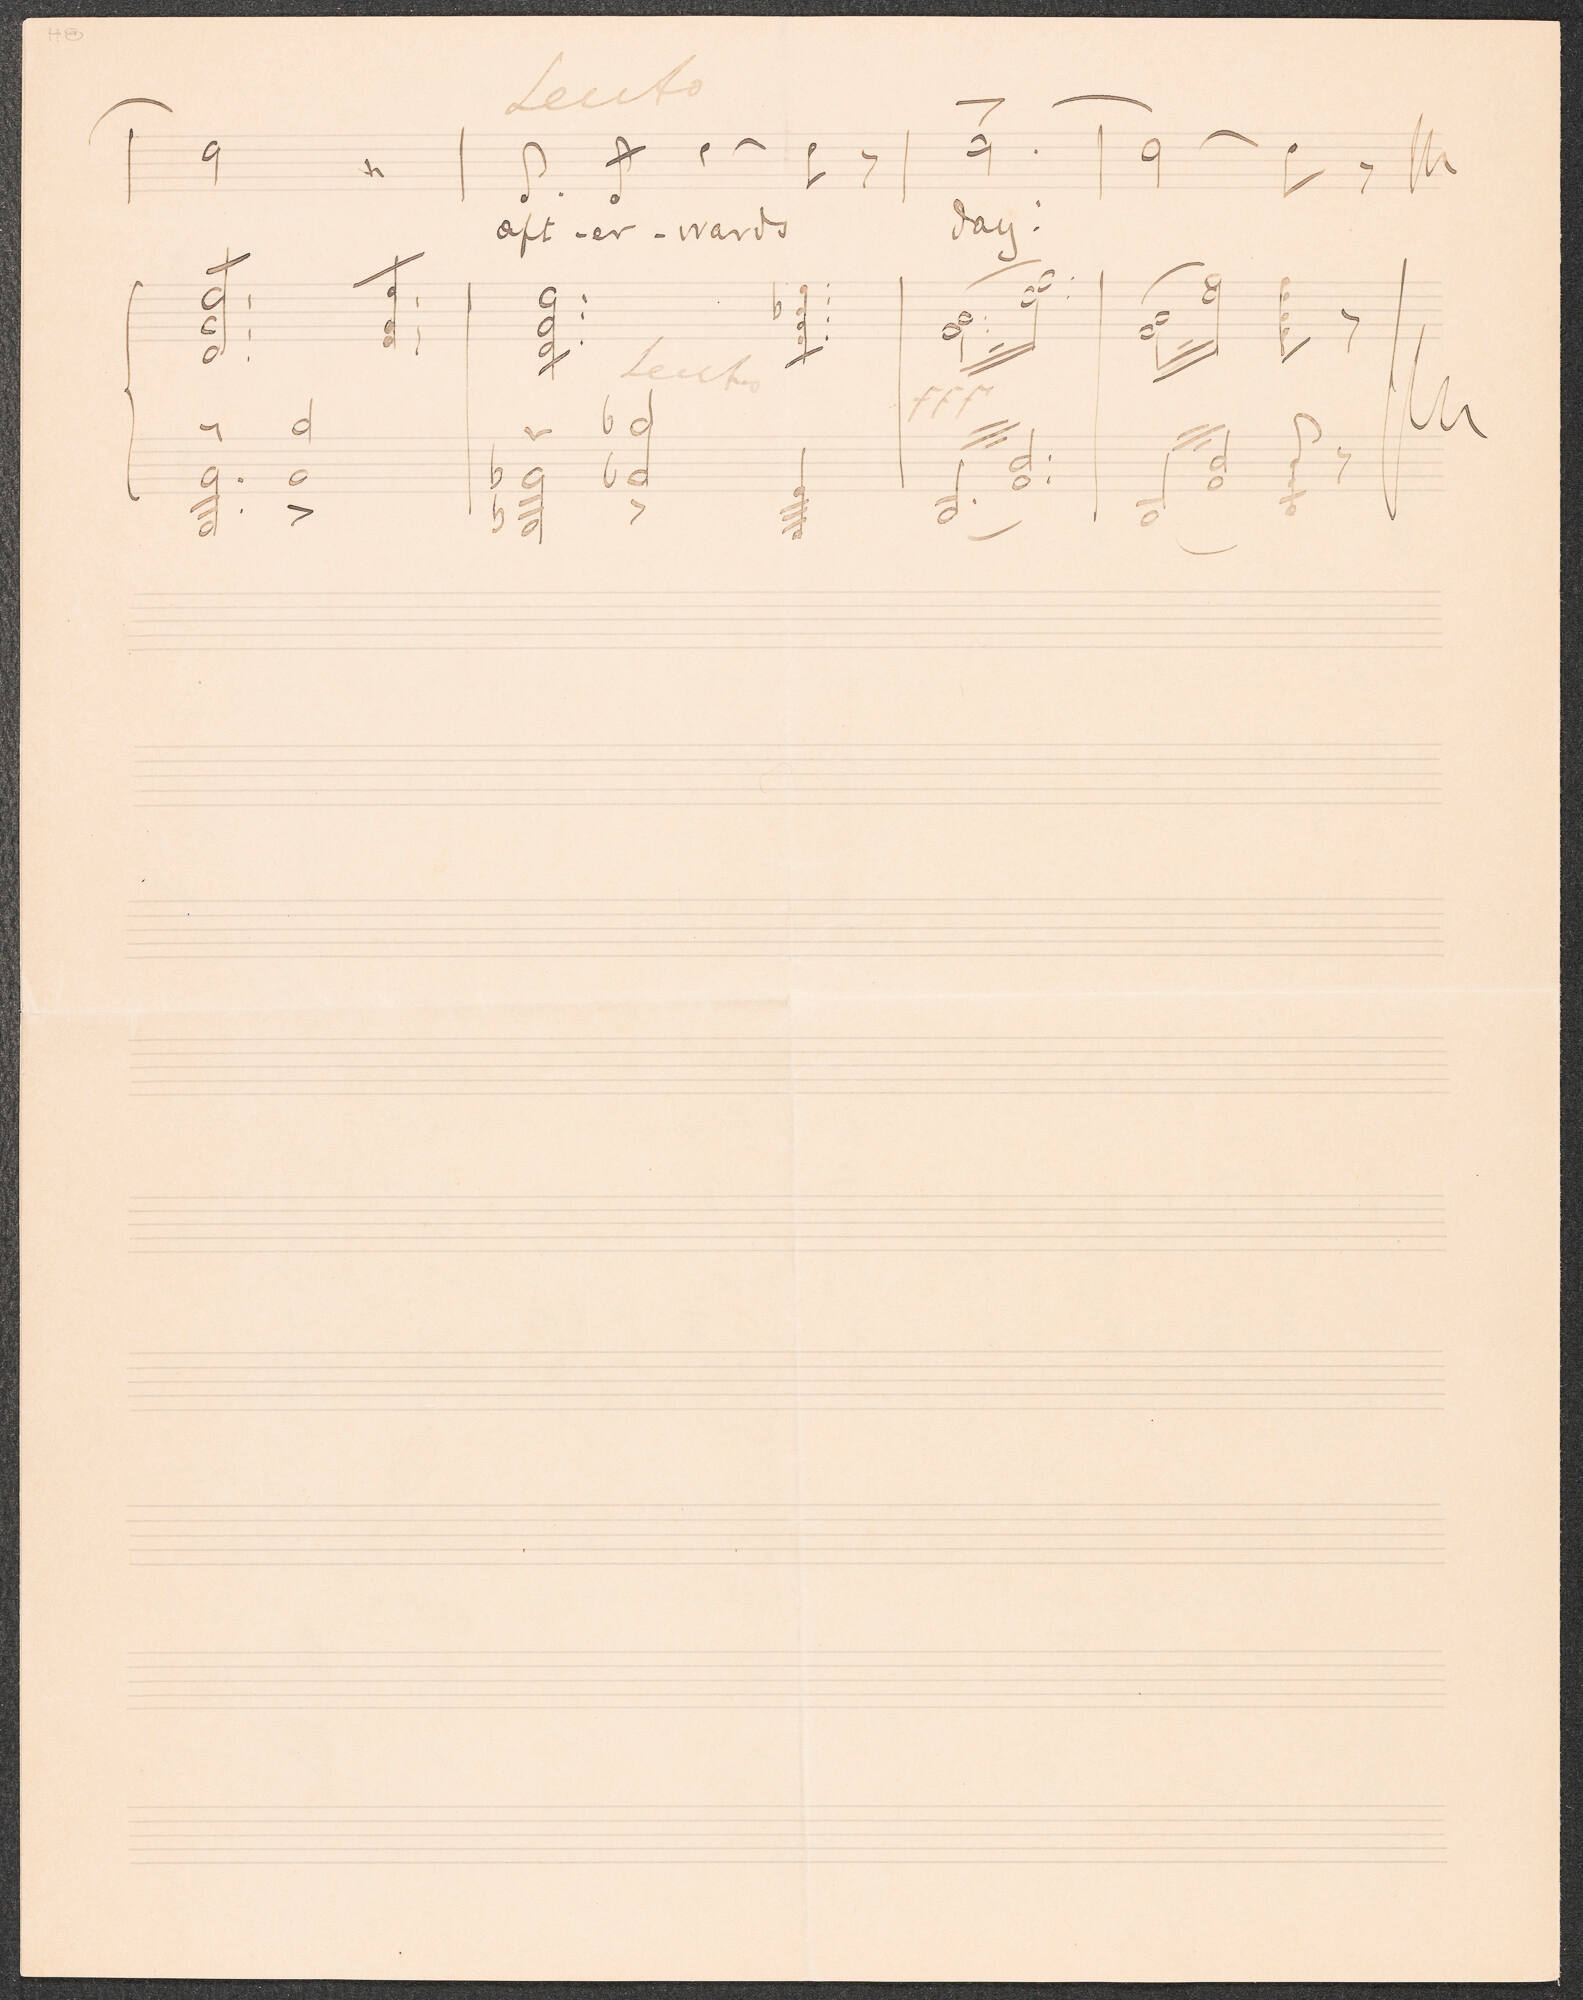 Lento
aft-er-wards day:
Lento
fff